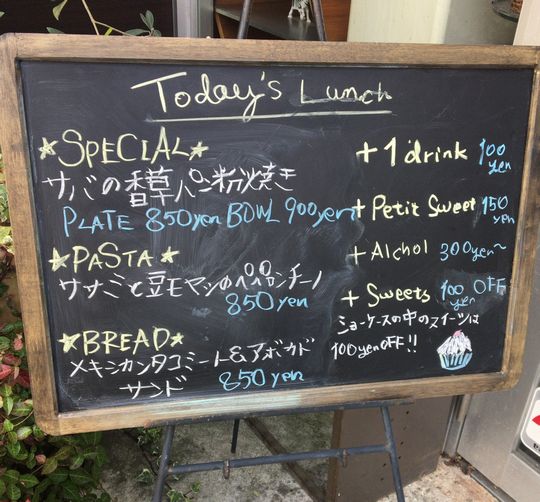 Today's Lunch
★SPECIAL★
サバの香草パン粉焼き
PLATE 850yen BOWL 900yen
★PASTA★
ササミと豆モヤシのペペロンチーノ
850yen
★BREAD★
メキシカンタコミート&アボカド
サンド 850yen
+1drink 100yen
+Petit Sweet 150yen
+Alchol 300yen~
+Sweets 100yen OFF
ショーケースの中のスイーツは
100yenOFF!!